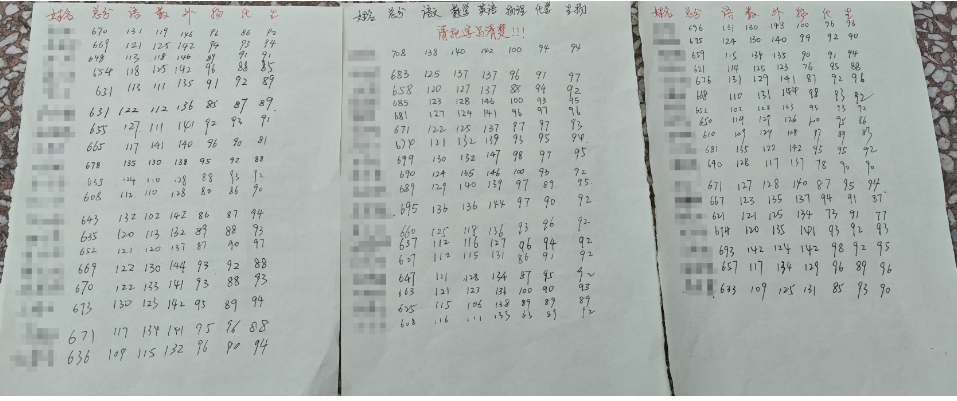 姓名 总分 语 数 外 物 化 生
670 131 119 146 96 86 92
669 121 125 142 94 93 94
648 113 118 146 89 91 91
654 118 125 142 96 88 85
631 113 111 135 91 92 89
631 122 112 136 85 87 89
655 127 111 141 92 93 91
665 117 141 140 96 90 81
678 135 130 138 95 92 88
635 124 110 128 88 93 92
608 112 110 128 82 86 90
643 132 102 142 86 87 94
635 120 113 132 89 88 93
652 121 120 137 87 90 97
669 122 130 144 93 92 88
670 122 133 141 93 88 93
673 130 123 142 95 89 94
671 117 134 141 95 96 88
636 109 115 132 96 90 94
姓名 总分 语文 数学 英语 物理 化学 生物
请把字写清楚!!!
708 138 140 142 100 94 94
683 125 137 137 96 91 97
658 120 127 137 88 94 92
685 123 128 146 100 93 95
681 127 124 141 96 97 96
671 122 125 137 97 97 93
674 121 132 139 93 95 94
699 130 132 147 98 97 95
690 124 135 146 100 93 92
689 129 140 139 97 89 95
695 136 136 144 97 90 92
660 125 118 136 93 96 92
637 112 116 127 96 94 92
627 112 115 131 86 91 92
647 111 128 134 87 95 92
663 121 123 136 100 90 93
625 115 106 138 89 89
608 116 111 89 92
姓名 总分 语 数 外 物 化 生
696 131 130 143 100 96 96
675 124 130 140 99 92 90
659 115 134 135 90 91 94
621 114 125 123 76 95 88
676 131 129 141 87 92 96
668 110 131 144 98 93 92
652 102 128 143 94 93 92
650 119 129 126 95 86
610 109 129 108 89
681 135 122 142 95 95 92
640 128 117 137 78 90 90
671 127 128 140 87 95 94
667 123 135 137 94 91 87
621 121 125 134 73 91 77
674 120 135 141 93 92 93
693 142 124 142 98 92 95
657 117 134 129 96 89 96
633 109 125 131 85 93 90